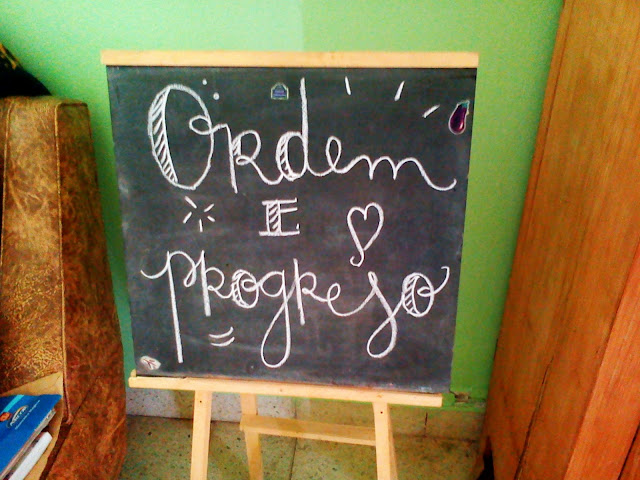 Ordem
E
progreso